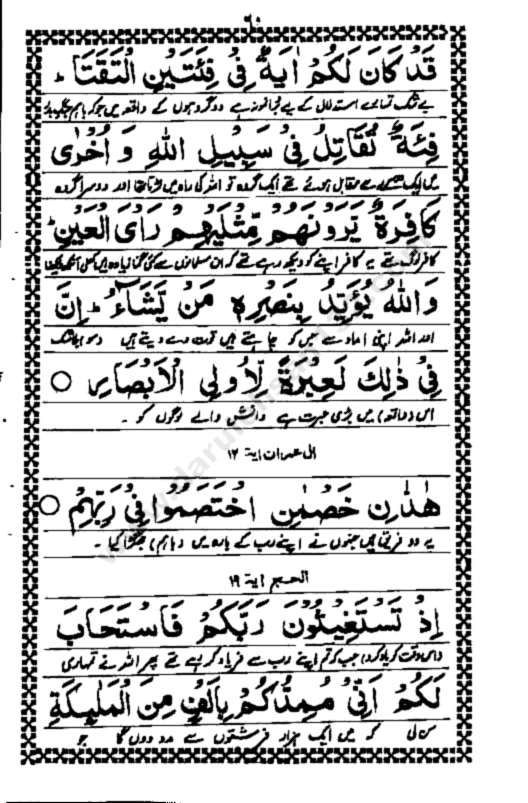 ٦٠
قَدْ كَانَ لَكُمْ اٰيَةٌ فِيْ فِئَتَيْنِ الْتَقَتَا ؕ
بے شک تمہارے استدلال کے لیے بڑا نمونہ ہے دو گروہوں کے واقعہ میں جو کہ باہم
فِئَةٌ تُقَاتِلُ فِيْ سَبِيْلِ اللّٰهِ وَ اُخْرٰى
میں ایک دوسرے سے مقابل ہوئے تھے ایک گروہ تو اللہ کی راہ میں لڑتا تھا اور دوسرا گروہ
كَافِرَةٌ يَّرَوْنَهُمْ مِّثْلَيْهِمْ رَاْيَ الْعَيْنِ ؕ
کافر لوگ تھے یہ کافر اپنے کو دیکھ رہے تھے کہ ان مسلمانوں سے کئی گنا زیادہ ہیں کھلی آنکھ دیکھنا
وَاللّٰهُ يُؤَيِّدُ بِنَصْرِهٖ مَنْ يَّشَآءُ ؕ اِنَّ
اور اللہ اپنی امداد سے جس کو چاہتے ہیں قوت دے دیتے ہیں
فِيْ ذٰلِكَ لَعِبْرَةً لِّاُولِي الْاَبْصَارِ ○
اس (واقعہ) میں بڑی عبرت ہے دانش والے لوگوں کو ۔
اٰل عمران اية ١٣
هٰذٰنِ خَصْمٰنِ اخْتَصَمُوْا فِيْ رَبِّهِمْ ○
یہ دو فریق ہیں جنہوں نے اپنے رب کے بارہ میں (باہم) جھگڑا کیا ۔
الحج اية ١٩
اِذْ تَسْتَغِيْثُوْنَ رَبَّكُمْ فَاسْتَجَابَ
(اس وقت کو یاد کرو) جب کہ تم اپنے رب سے فریاد کر رہے تھے پھر اللہ نے تمہاری
لَكُمْ اَنِّيْ مُمِدُّكُمْ بِاَلْفٍ مِّنَ الْمَلٰٓئِكَةِ
سن لی کہ میں ایک ہزار فرشتوں سے مدد دوں گا جو